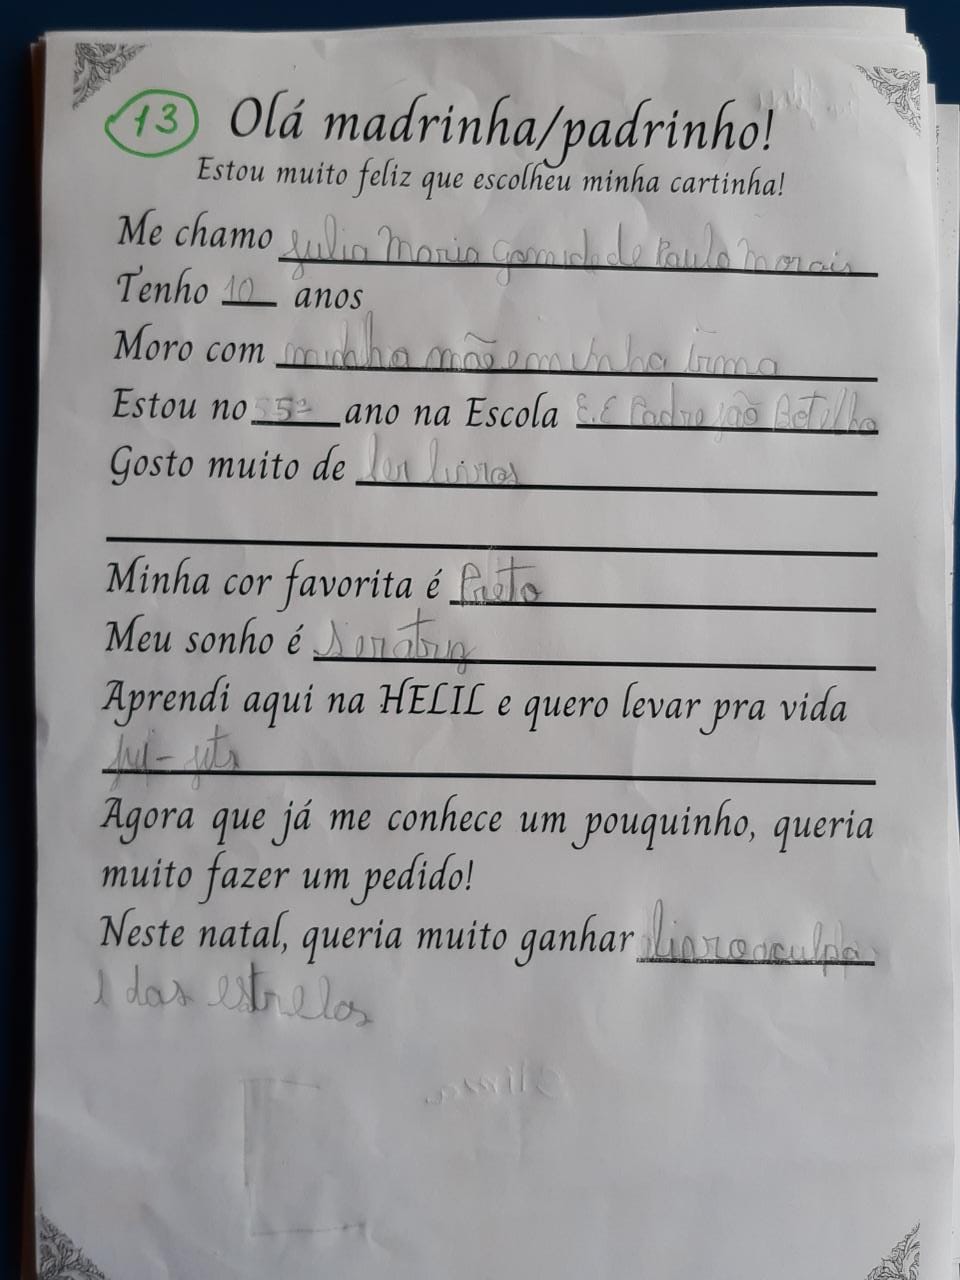 13 Olá madrinha/padrinho!
Estou muito feliz que escolheu minha cartinha!
Me chamo Julia Maria de Paula Morais
Tenho 10 anos
Moro com minha mãe e minha irma
Estou no 5º ano na Escola E.E Padre João Botelho
Gosto muito de ler livros
Minha cor favorita é Preto
Meu sonho é ser atriz
Aprendi aqui na HELIL e quero levar pra vida
Agora que já me conhece um pouquinho, queria
muito fazer um pedido!
Neste natal, queria muito ganhar livro a culpa
é das estrelas